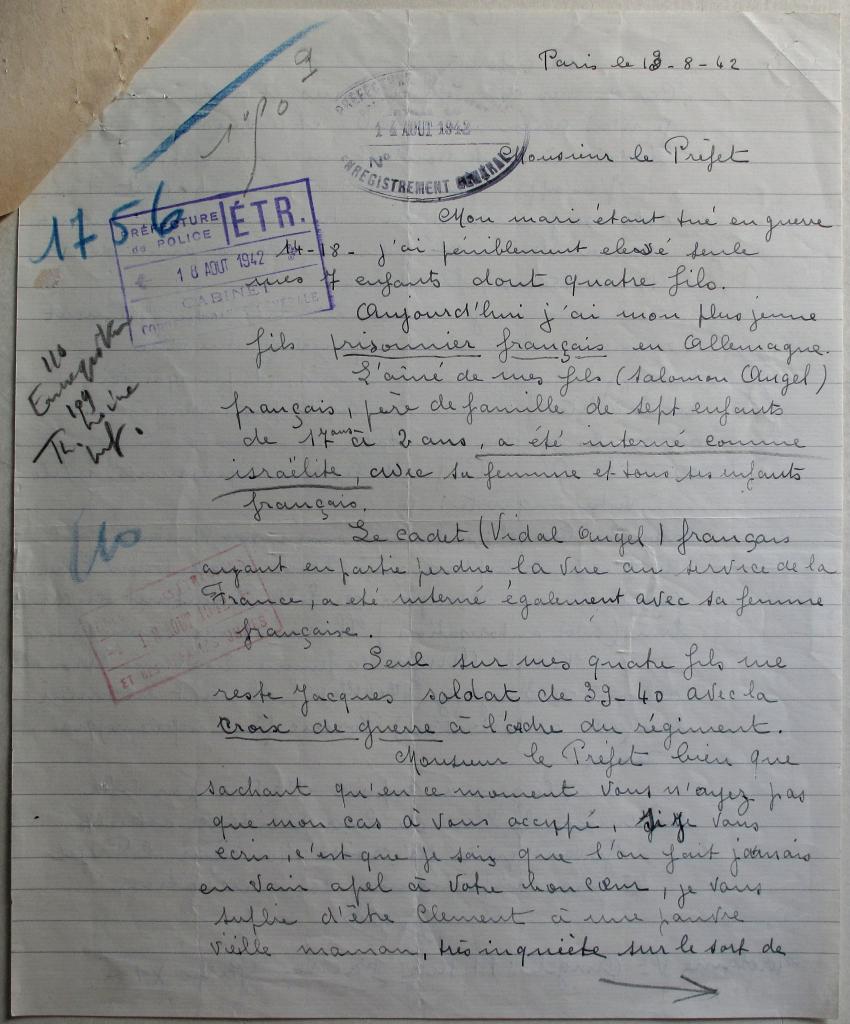 Paris le 13-8-42
9
PRÉFECTURE
14 AOUT 1942
No
ENREGISTREMENT GÉNÉRAL
Monsieur le Préfet
1756
PRÉFECTURE de POLICE ÉTR.
18 AOUT 1942
CABINET
Mon mari étant tué en guerre
14-18- j'ai péniblement elevé seule
mes 7 enfants dont quatre fils.
Aujourd'hui j'ai mon plus jeune
fils prisonnier français en Allemagne.
L'ainé de mes fils (Salomon Angel)
français, père de famille de sept enfants
de 17 ans à 2 ans, a été interné comme
israëlite, avec sa femme et tous ses enfants
français.
Le cadet (Vidal Angel) français
ayant en partie perdue la vue au service de la
France, a eté interné également avec sa femme
française.
Seul sur mes quatre fils me
reste Jacques soldat de 39-40 avec la
croix de guerre à l'ordre du régiment.
Monsieur le Préfet bien que
sachant qu'en ce moment vous n'ayez pas
que mon cas à vous occupé, si je vous
écris, c'est que je sais que l'on fait jamais
en vain apel à votre bon cœur, je vous
suplie d'être Clement à une pauvre
vieille maman, très inquiète sur le sort de